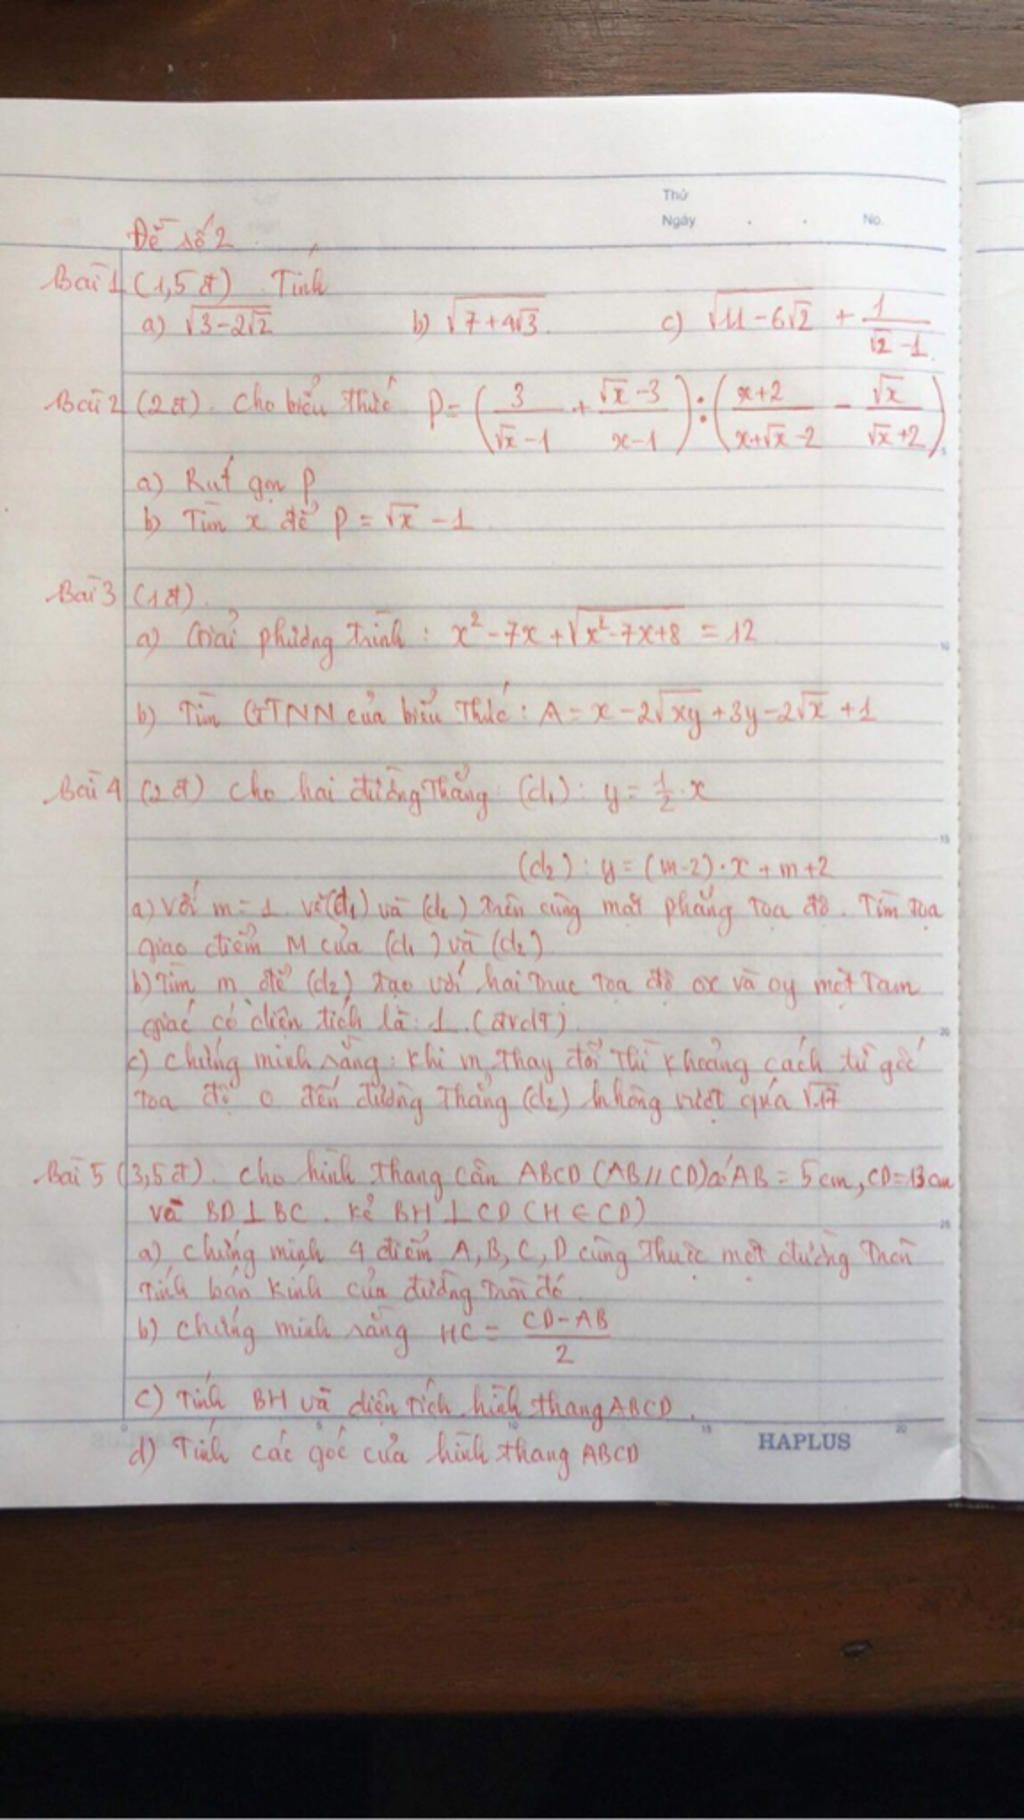 Thứ
Ngày . . No.
Đề số 2
Bài 1 (1,5đ) Tính
a) √(3-2√2) b) √(7+4√3). c) √(11-6√2) + 1/(√2-1)
Bài 2 (2đ). Cho biểu thức P = (3/(√x-1) + (√x-3)/(x-1)) : ((x+2)/(x+√x-2) - √x/(√x+2))
a) Rút gọn P
b) Tìm x để P = √x - 1
Bài 3 (1đ).
a) Giải phương trình : x² - 7x + √(x²-7x+8) = 12
b) Tìm GTNN của biểu thức : A = x - 2√xy + 3y - 2√x + 1
Bài 4 (2đ) Cho hai đường thẳng (d₁) : y = 1/2 . x
(d₂) : y = (m-2) . x + m + 2
a) Với m = 1. vẽ (d₁) và (d₂) trên cùng mặt phẳng tọa độ. Tìm tọa
giao điểm M của (d₁) và (d₂)
b) Tìm m để (d₂) tạo với hai trục tọa độ ox và oy một tam
giác có diện tích là : 1 (đvdt)
c) Chứng minh rằng : khi m thay đổi thì khoảng cách từ gốc
tọa độ O đến đường thẳng (d₂) không vượt quá √17
Bài 5 (3,5đ). Cho hình thang cân ABCD (AB // CD) có AB = 5 cm, CD = 13 cm
và BD ⊥ BC. kẻ BH ⊥ CD (H ∈ CD)
a) Chứng minh 4 điểm A, B, C, D cùng thuộc một đường tròn
Tính bán kính của đường tròn đó
b) Chứng minh rằng HC = (CD - AB)/2
c) Tính BH và diện tích hình thang ABCD.
HAPLUS
d) Tính các góc của hình thang ABCD